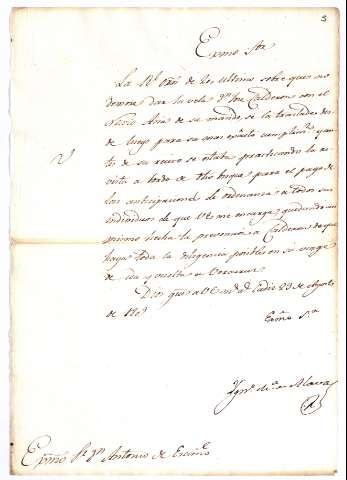 5
Exmo Sor
La Rl orn de 20 ultimo sobre que no
demore dar la vela Dn Jose Calderon con el
Navio de su mando, se la traslade des
de luego para su mas exacto cumplimto y an
tes de su recivo se estaba practicando la re
vista a bordo de dho buque para el pago de
las anticipaciones de ordenanza a todos sus
individuos de que VE me encarga, quedando asi
mismo hecha la prevencion a Calderon de que
haga toda la diligencia posible en su viage
de ida y vuelta a Veracruz
Dios gue a VE ms as Cadiz 29 de Agosto
de 180
Exmo Sor
Ygno Ma de Alava
Exmo Sr Dn Antonio de